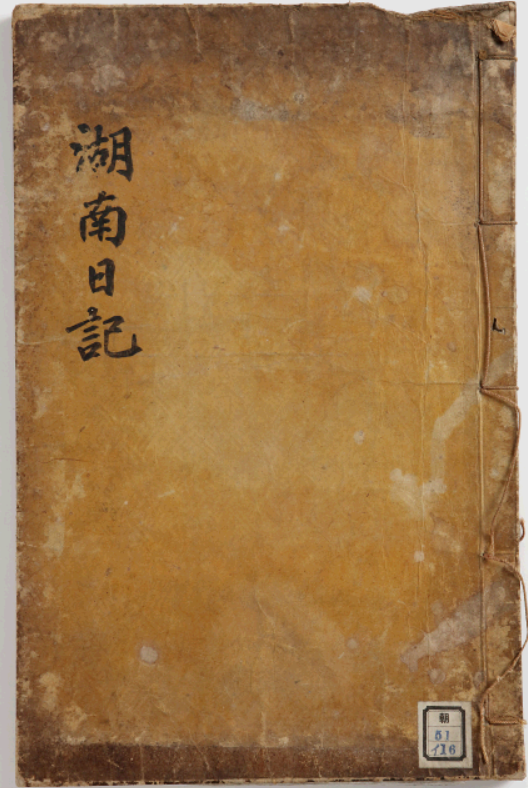 湖南日記
朝
51
イ16